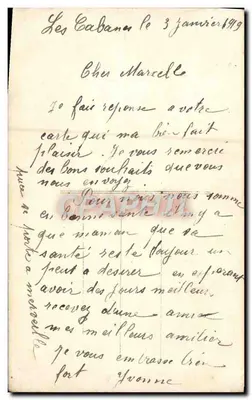 Les Cabanes le 3 Janvier 1919
Cher Marcelle
Je fais reponse a votre
carte qui ma bien fait
plaisir. Je vous remerci
des bons souhaits que vous
nous envoyez
Pour nous somme
en bonne santé il ny a
que maman que sa
santé reste toujour un
peut a desirer en esperant
avoir des jours meilleur
recevez d'une amie
mes meilleurs amitier
Je vous embrasse bien
fort Yvonne
se porte a merveille